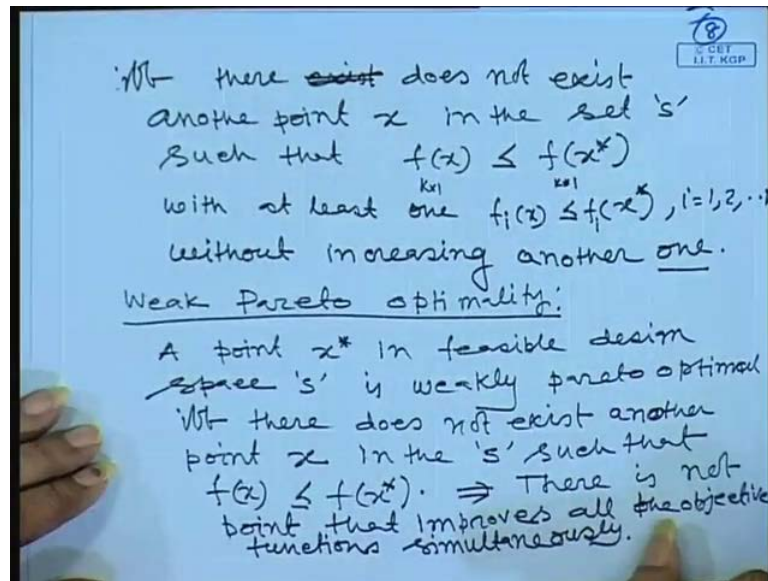 8
© CET
I.I.T. KGP
iff there exist does not exist
anothe point x in the set 's'
such that f(x) ≤ f(x*)
kx1 kx1
with at least one fi(x) ≤ fi(x*), i=1,2,..
without increasing another one.
Weak Pareto optimality:
A point x* in feasible design
space 's' is weakly pareto optimal
iff there does not exist another
point x in the 's' such that
f(x) ≤ f(x*). ⇒ There is not
point that improves all the objective
functions simultaneously.